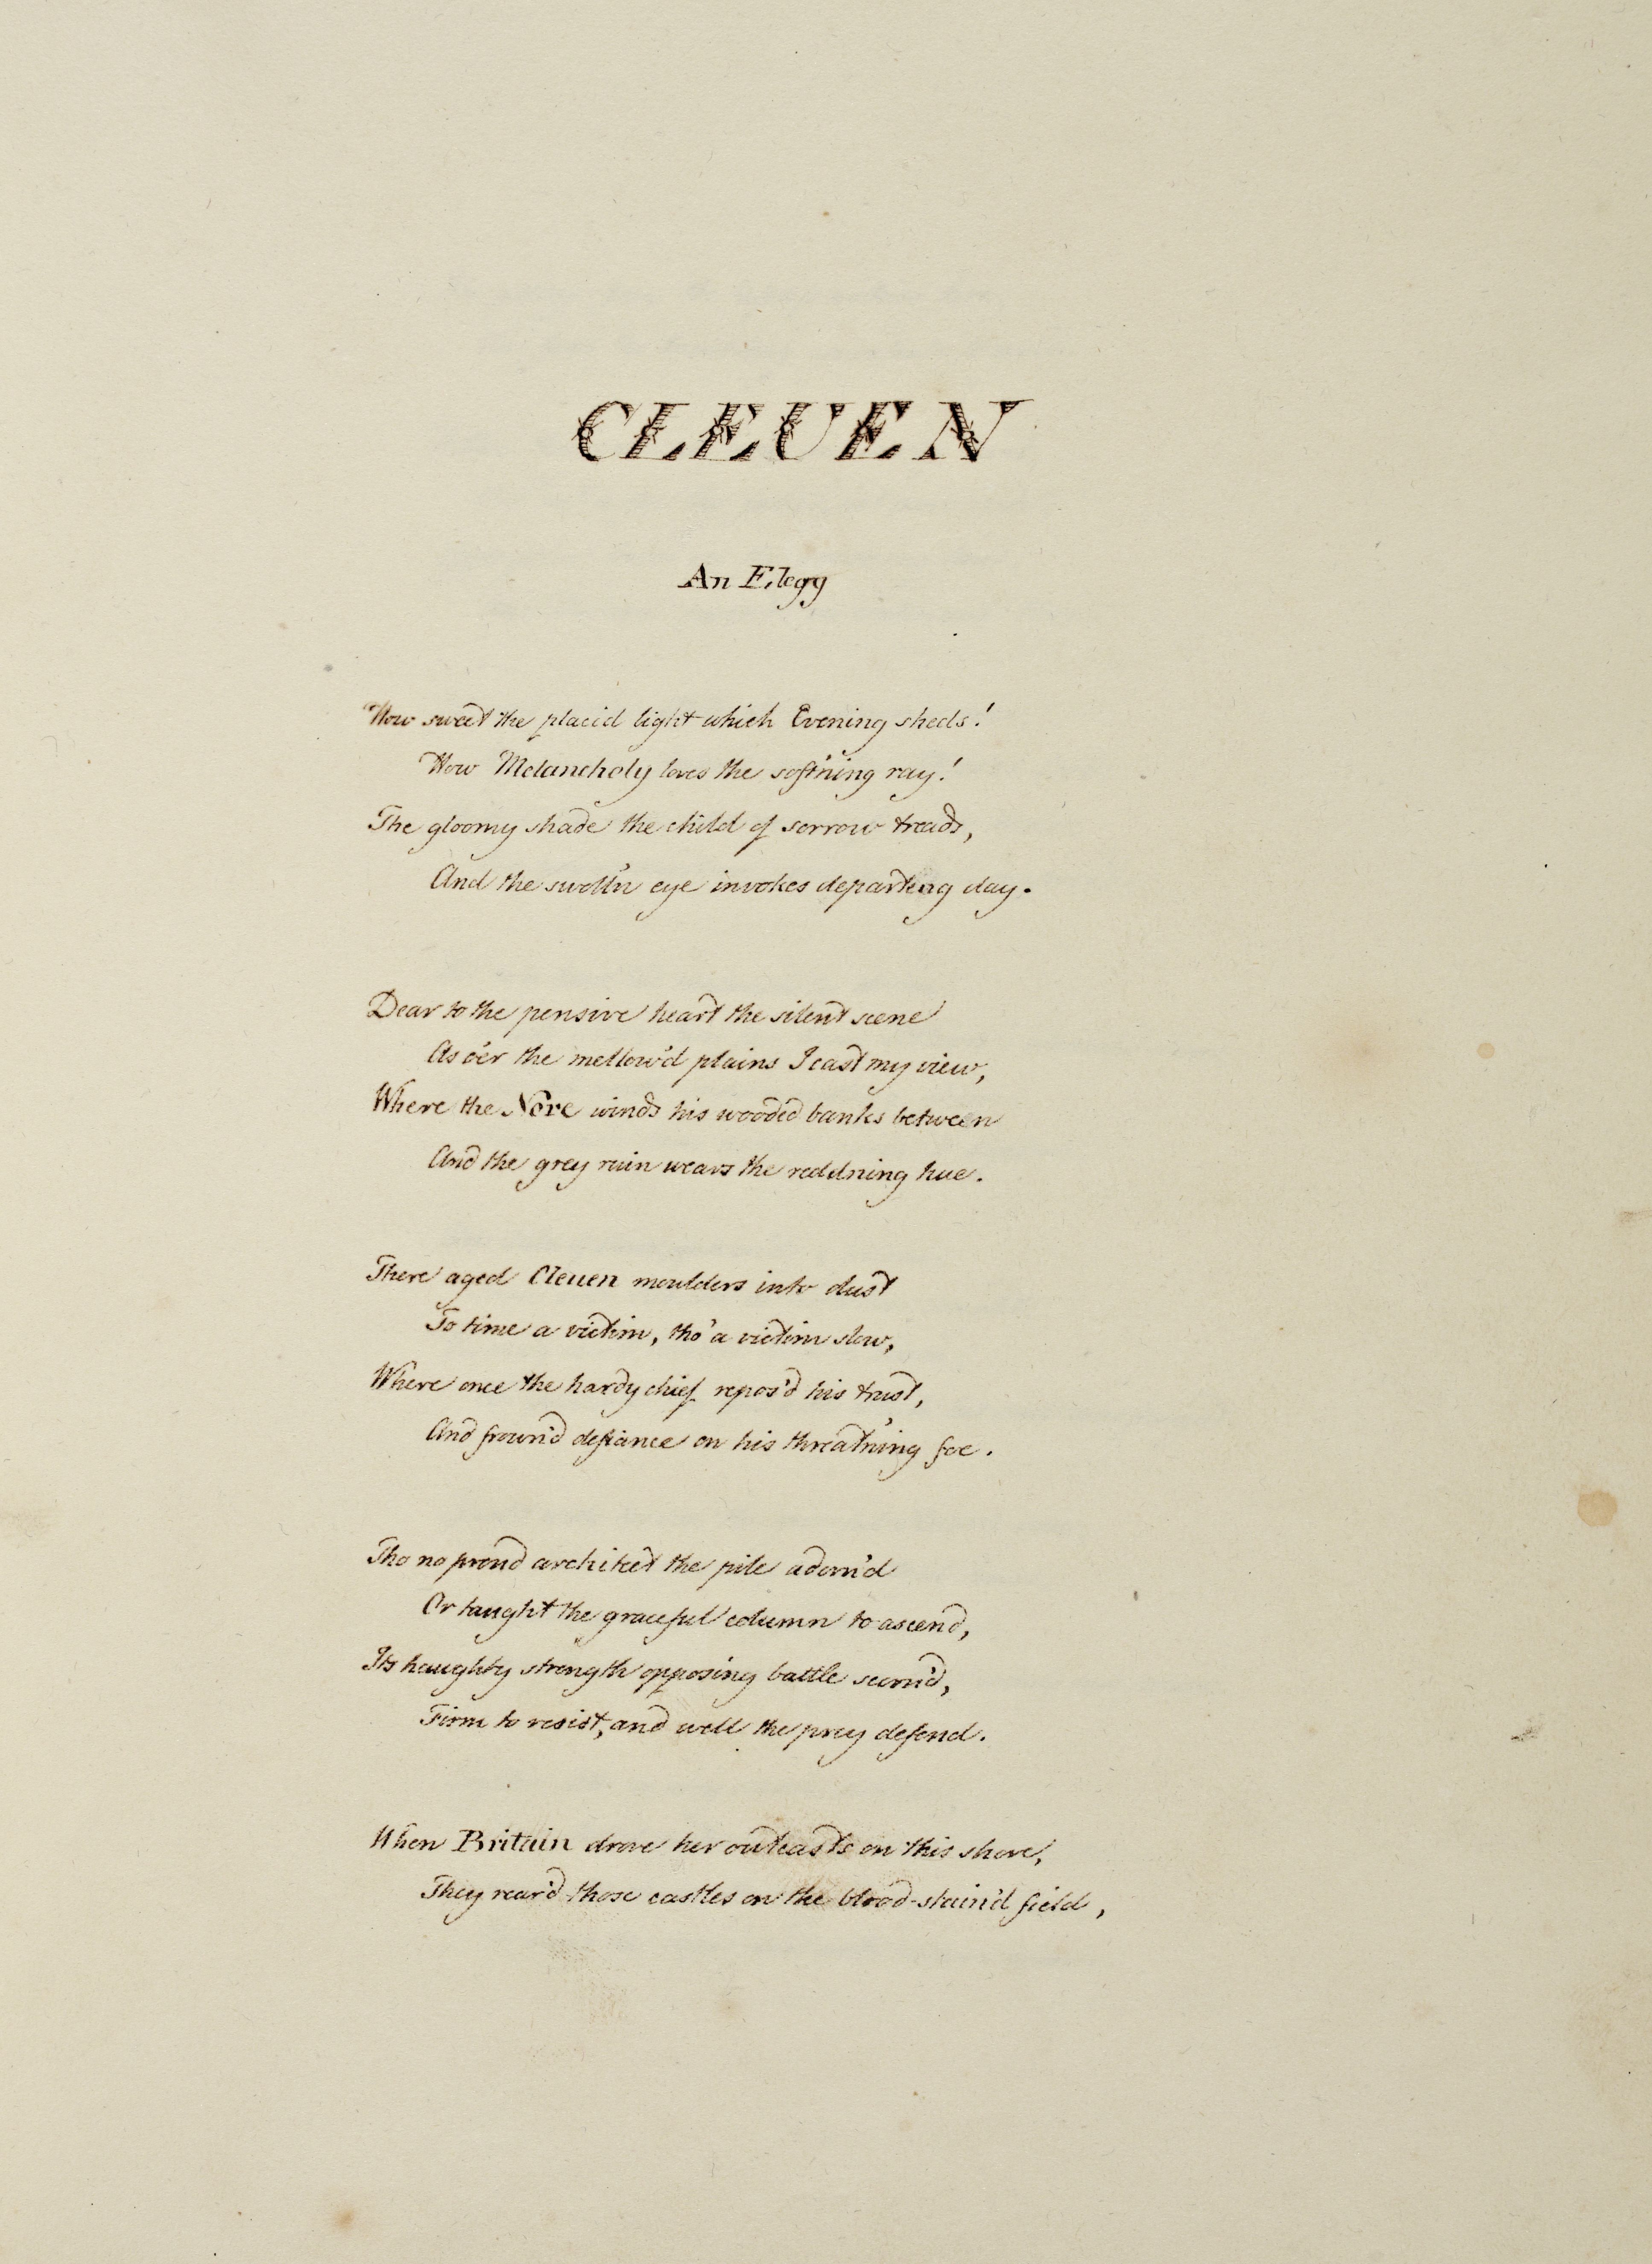 CLEUEN
An Elegy
How sweet the placid light which Evening sheds!
How Melancholy loves the soft'ning ray!
The gloomy shade the child of sorrow treads,
And the swoll'n eye invokes departing day.
Dear to the pensive heart the silent scene
As o'er the mellow'd plains I cast my view,
Where the Nore winds his wooded banks between
And the grey ruin wears the redd'ning hue.
There aged Cleuen moulders into dust
To time a victim, tho' a victim slow,
Where once the hardy chief repos'd his trust,
And frown'd defiance on his threat'ning foe.
Tho no proud architect the pile adorn'd
Or taught the graceful column to ascend,
Its haughty strength opposing battle scorn'd,
Firm to resist, and well the prey defend.
When Britain drove her outcasts on this shore,
They rear'd those castles on the blood-stain'd field,